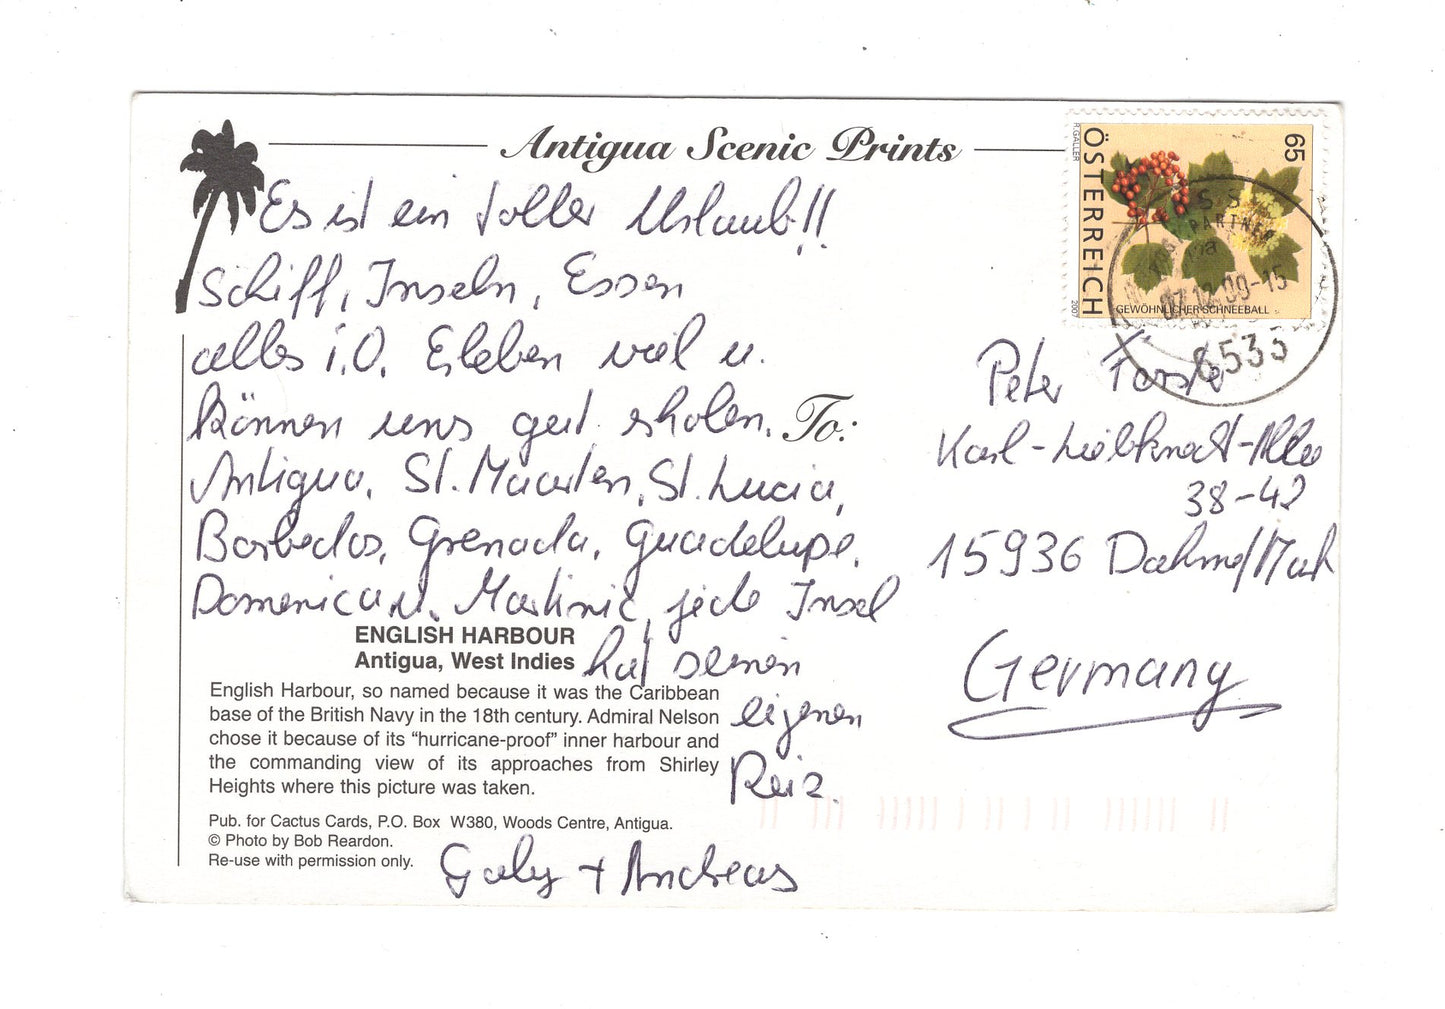 Antigua Scenic Prints
Es ist ein toller Urlaub!!
Schiff, Inseln, Essen
alles i.O. Erleben viel u.
können uns gut erholen.
Antigua, St. Maarten, St. Lucia,
Barbedos, Grenada, Guadelupe,
Domenica u. Martinic, jede Insel
hat seinen
eigenen
Reiz.
Gaby + Andreas
ENGLISH HARBOUR
Antigua, West Indies
English Harbour, so named because it was the Caribbean
base of the British Navy in the 18th century. Admiral Nelson
chose it because of its “hurricane-proof” inner harbour and
the commanding view of its approaches from Shirley
Heights where this picture was taken.
Pub. for Cactus Cards, P.O. Box W380, Woods Centre, Antigua.
© Photo by Bob Reardon.
Re-use with permission only.
To:
Peter
Karl-Liebknecht-Allee
38-42
15936 Dahme/Mark
Germany
R.GALLER
ÖSTERREICH
2007
65
GEWÖHNLICHER SCHNEEBALL
PARTNER
07.12.09-15
6533